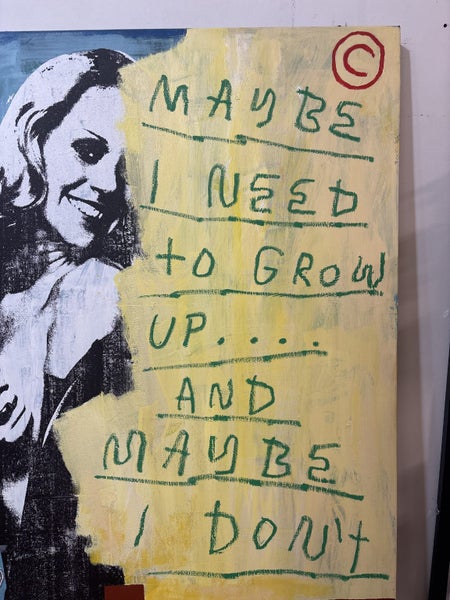 ©
MAYBE
I NEED
tO GROW
UP.....
AND
MAYBE
I DON't